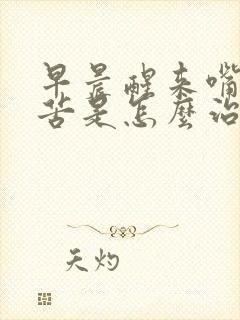 早晨醒来嘴
苦是怎麼治
天灼